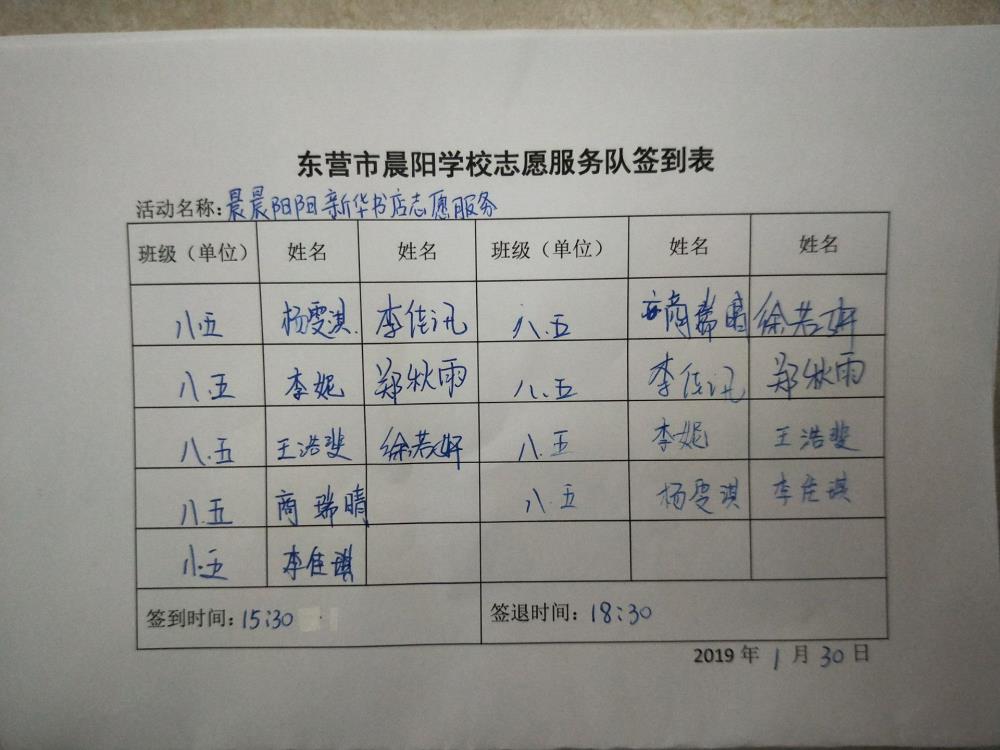 东营市晨阳学校志愿服务队签到表
活动名称:晨晨阳阳新华书店志愿服务
班级（单位） 姓名 姓名 班级（单位） 姓名 姓名
八.五 杨雯淇 李佳讯 八.五 商瑞晴 徐若妍
八.五 李妮 郑秋雨 八.五 李佳讯 郑秋雨
八.五 王浩斐 徐若妍 八.五 李妮 王浩斐
八.五 商瑞晴 八.五 杨雯淇 李佳琪
八.五 李佳琪
签到时间:15:30 签退时间:18:30
2019 年 1 月 30 日